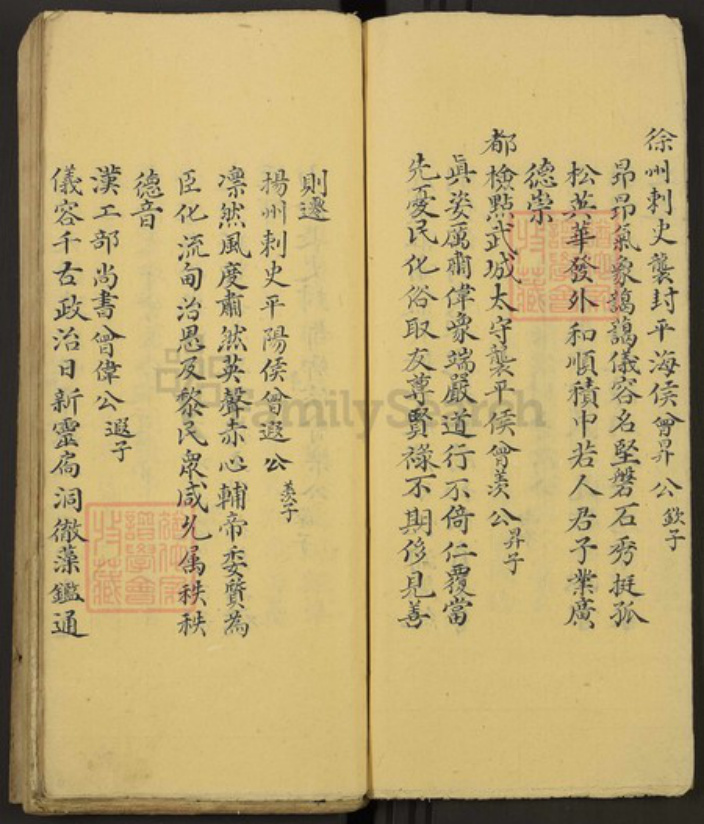 徐州刺史襲封平海侯曾昇公欽子
昂昂氣象藹藹儀容名堅磐石秀挺孤
松英華發外和順積中若人君子業廣
德崇
都檢點武城太守襲平侯曾羨公昇子
真姿厲肅偉象端嚴道行不倚仁覆當
先憂民化俗取友尊賢祿不期侈見善
則遷
揚州刺史平陽侯曾遐公羨子
凛然風度肅然英聲赤心輔帝委質為
臣化流甸治恩及黎民眾咸允属秩秩
德音
漢工部尚書曾偉公遐子
儀容千古政治日新靈扃洞徹藻鑑通
FamilySearch